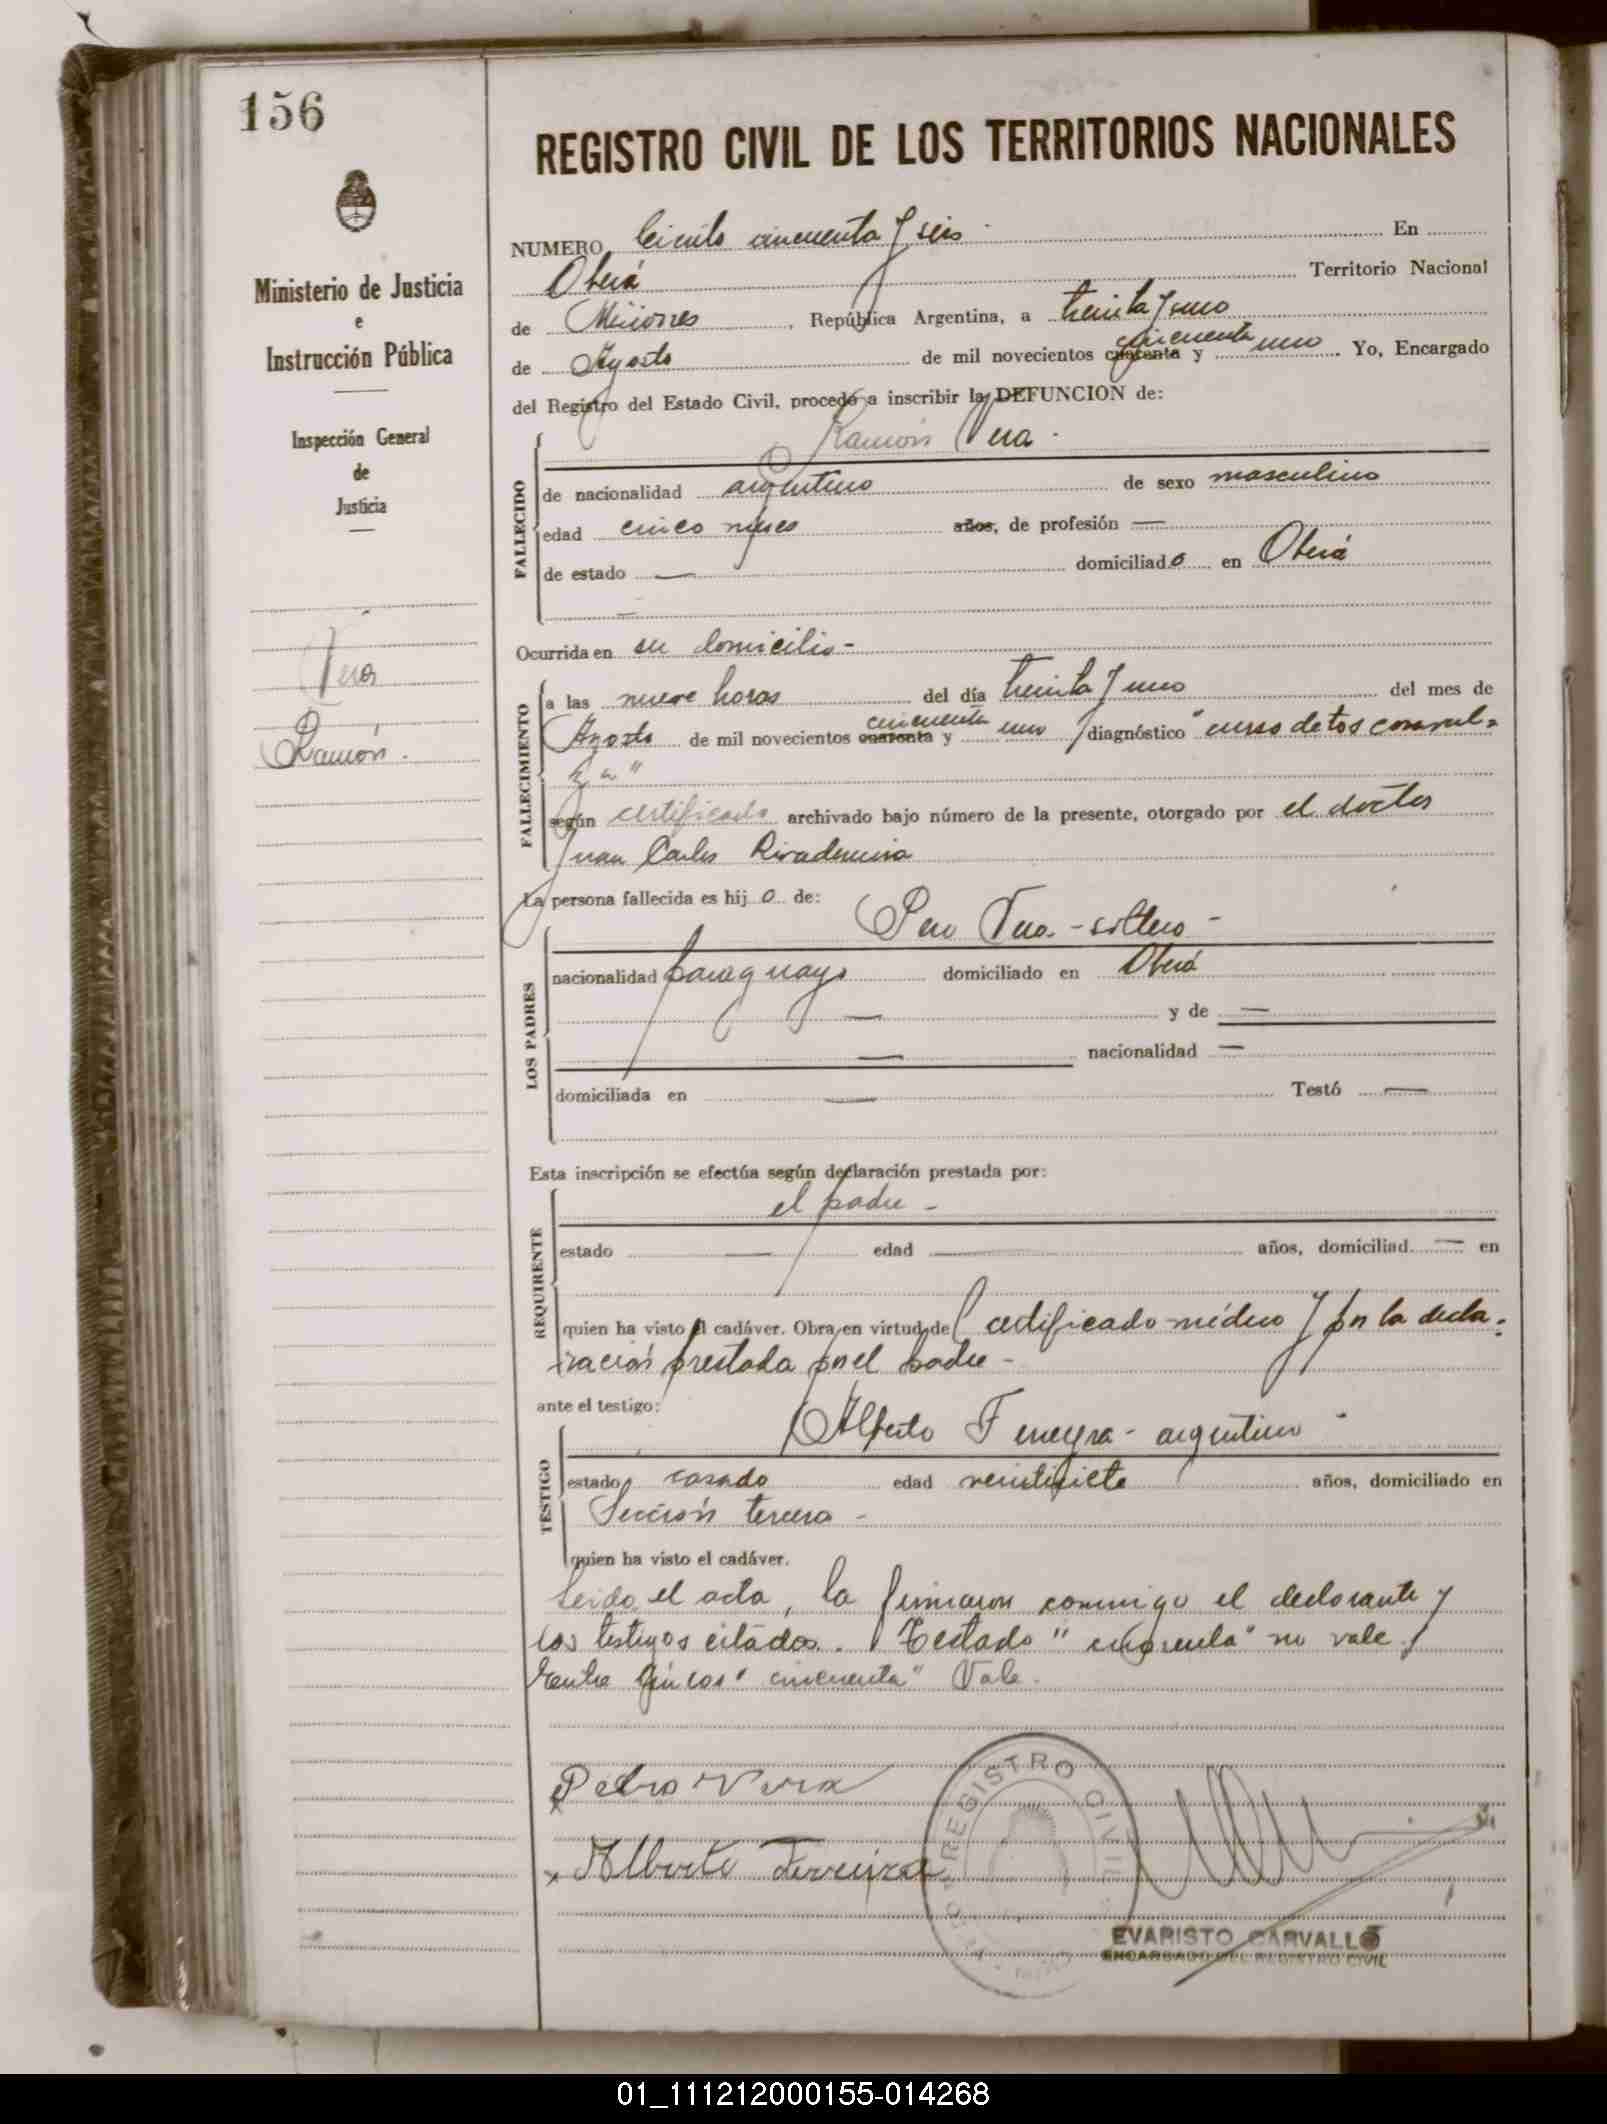 156
REGISTRO CIVIL DE LOS TERRITORIOS NACIONALES
Ministerio de Justicia
e
Instrucción Pública
Inspección General
de
Justicia
Vera
Ramón.
NUMERO Ciento cincuenta y seis - En
Oberá Territorio Nacional
de Misiones, República Argentina, a treinta y uno
cincuenta
de Agosto de mil novecientos cuarenta y uno. Yo, Encargado
del Registro del Estado Civil, procedo a inscribir la DEFUNCION de:
Ramón Vera -
FALLECIDO
de nacionalidad argentino de sexo masculino
edad cinco meses años, de profesión —
de estado — domiciliado en Oberá
—
Ocurrida en su domicilio -
FALLECIMIENTO
a las nueve horas del día treinta y uno del mes de
cincuenta
Agosto de mil novecientos cuarenta y uno diagnóstico "curso de tos convul-
según certificado archivado bajo número de la presente, otorgado por el doctor
Juan Carlos Rivadeneira
La persona fallecida es hijo de:
LOS PADRES
Vera - soltero -
nacionalidad paraguayo domiciliado en Oberá
— y de —
— nacionalidad —
domiciliada en — Testó —
Esta inscripción se efectúa según declaración prestada por:
el padre -
REQUIRENTE
estado — edad — años, domiciliad — en
quien ha visto el cadáver. Obra en virtud de certificado médico y por la decla-
ración prestada por el padre -
ante el testigo:
Alberto Ferreyra - argentino -
TESTIGO
estado casado edad veintisiete años, domiciliado en
Sección tercera -
quien ha visto el cadáver.
Leido el acta, la firmaron conmigo el declarante y
los testigos citados. Testado "cuarenta" no vale y
entre lineas "cincuenta" Vale.
Pedro Vera
x Alberto Ferreira
REGISTRO CIVIL
EVARISTO CARVALLO
ENCARGADO DEL REGISTRO CIVIL
01_111212000155-014268